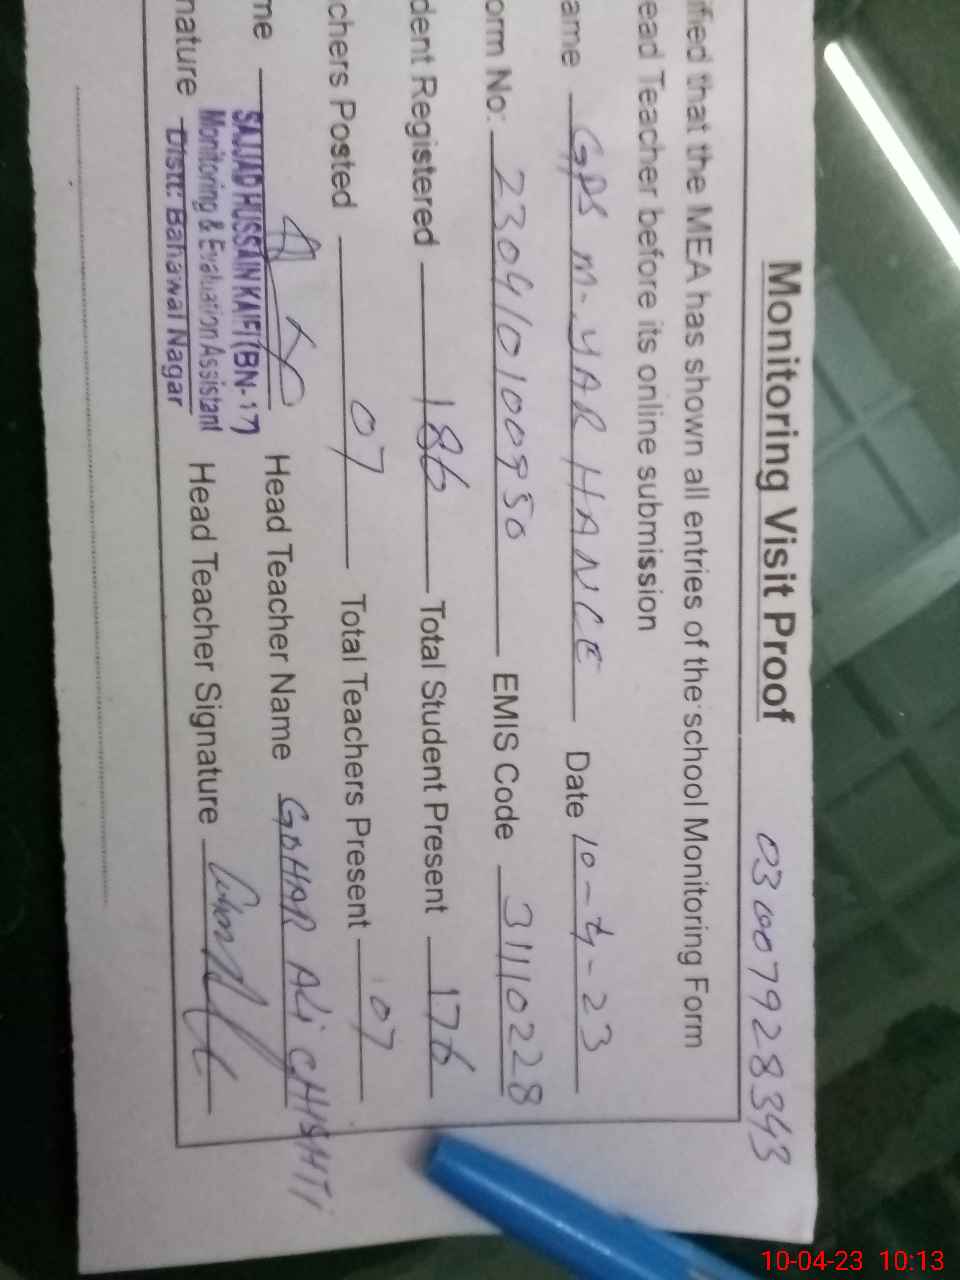 Monitoring Visit Proof 03007928343
ified that the MEA has shown all entries of the school Monitoring Form
ead Teacher before its online submission
ame GPS M-YAR HANCE Date 10-4-23
orm No: 230910100950 EMIS Code 31110228
dent Registered 186 Total Student Present 176
chers Posted 07 Total Teachers Present 07
me Head Teacher Name GOHAR ALI CHISHTI
SAJJAD HUSSAIN KAIFI (BN-17)
Monitoring & Evaluation Assistant
nature Distt: Bahawal Nagar Head Teacher Signature
10-04-23 10:13